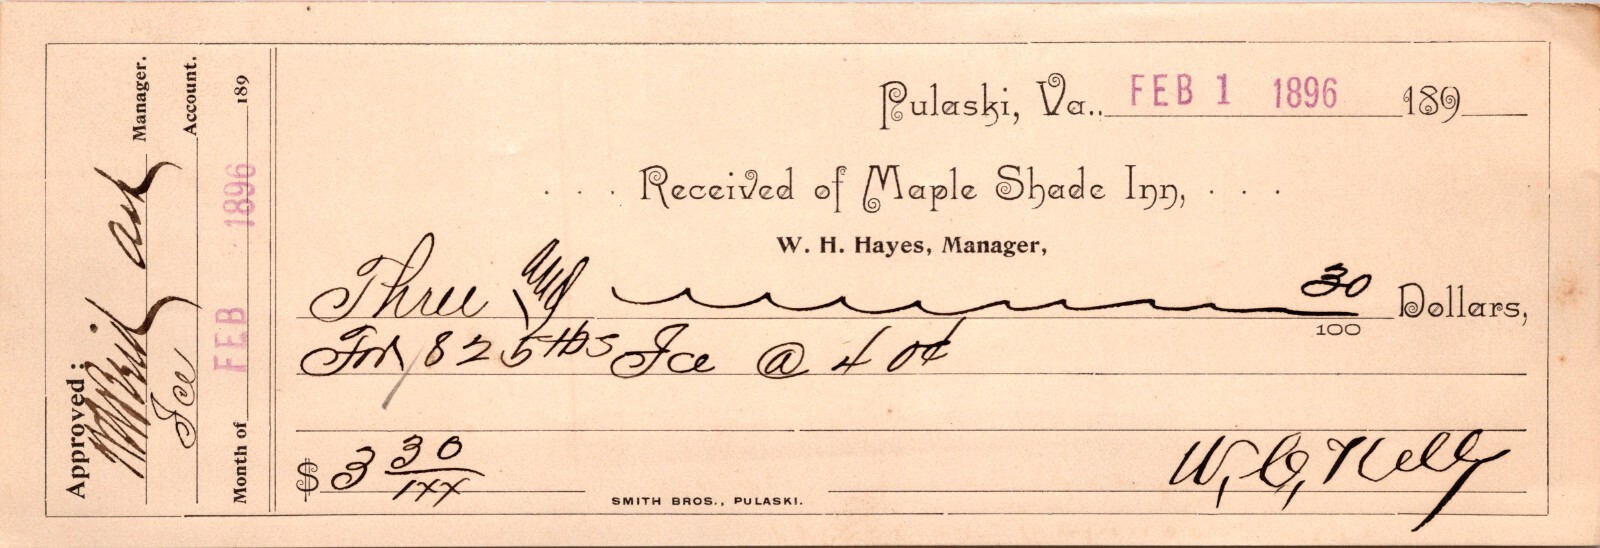 Approved:
Manager.
Ice Account.
Month of FEB 1896 189
Pulaski, Va.. FEB 1 1896 189
. . . Received of Maple Shade Inn, . . .
W. H. Hayes, Manager,
Three And 30/100 Dollars,
For 825 lbs Ice @ 40¢
$ 3 30/1xx
W. C. Kelly
SMITH BROS., PULASKI.